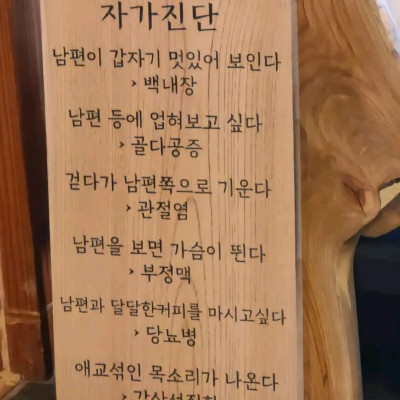 자가진단
남편이 갑자기 멋있어 보인다
> 백내장
남편 등에 업혀보고 싶다
> 골다공증
걷다가 남편쪽으로 기운다
> 관절염
남편을 보면 가슴이 뛴다
> 부정맥
남편과 달달한커피를 마시고싶다
> 당뇨병
애교섞인 목소리가 나온다